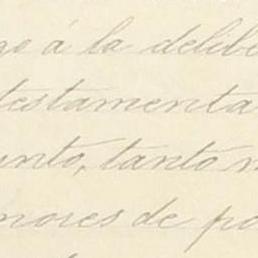 go á la delibe
testamenta
unto, tanto m
nores de po